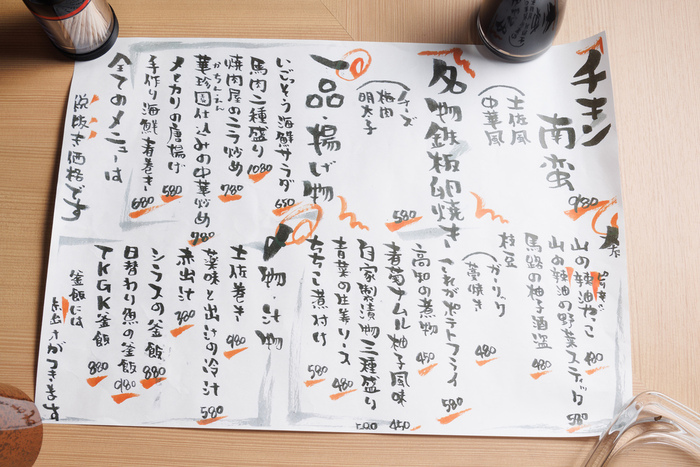 チキン
南蛮
土佐風
中華風
980
名物鉄板卵焼き
チーズ
梅肉
明太子
580
一品・揚げ物
いごっそう海鮮サラダ
650
馬肉二種盛り
1080
焼肉屋のニラ炒め
780
華珍園仕込みの中華炒め
かちんえん
780
メヒカリの唐揚げ
580
手作り海鮮春巻き
680
全てのメニューは
税抜き価格です
山の辣油やっこ
480
山の辣油の野菜スティック
580
馬路の柚子酒盗
480
枝豆
ガーリック
藁焼き
480
これがポテトフライ
580
高知の煮物
450
春菊ナムル柚子風味
450
自家製漬物三種盛り
500
青菜の生姜ソース
480
ちちこ煮付け
580
物・汁物
土佐巻き
980
薬味と出汁の冷汁
580
赤出汁
280
シラスの釜飯
880
日替わり魚の釜飯
980
TKGK釜飯
880
釜飯には
赤出汁がつきます